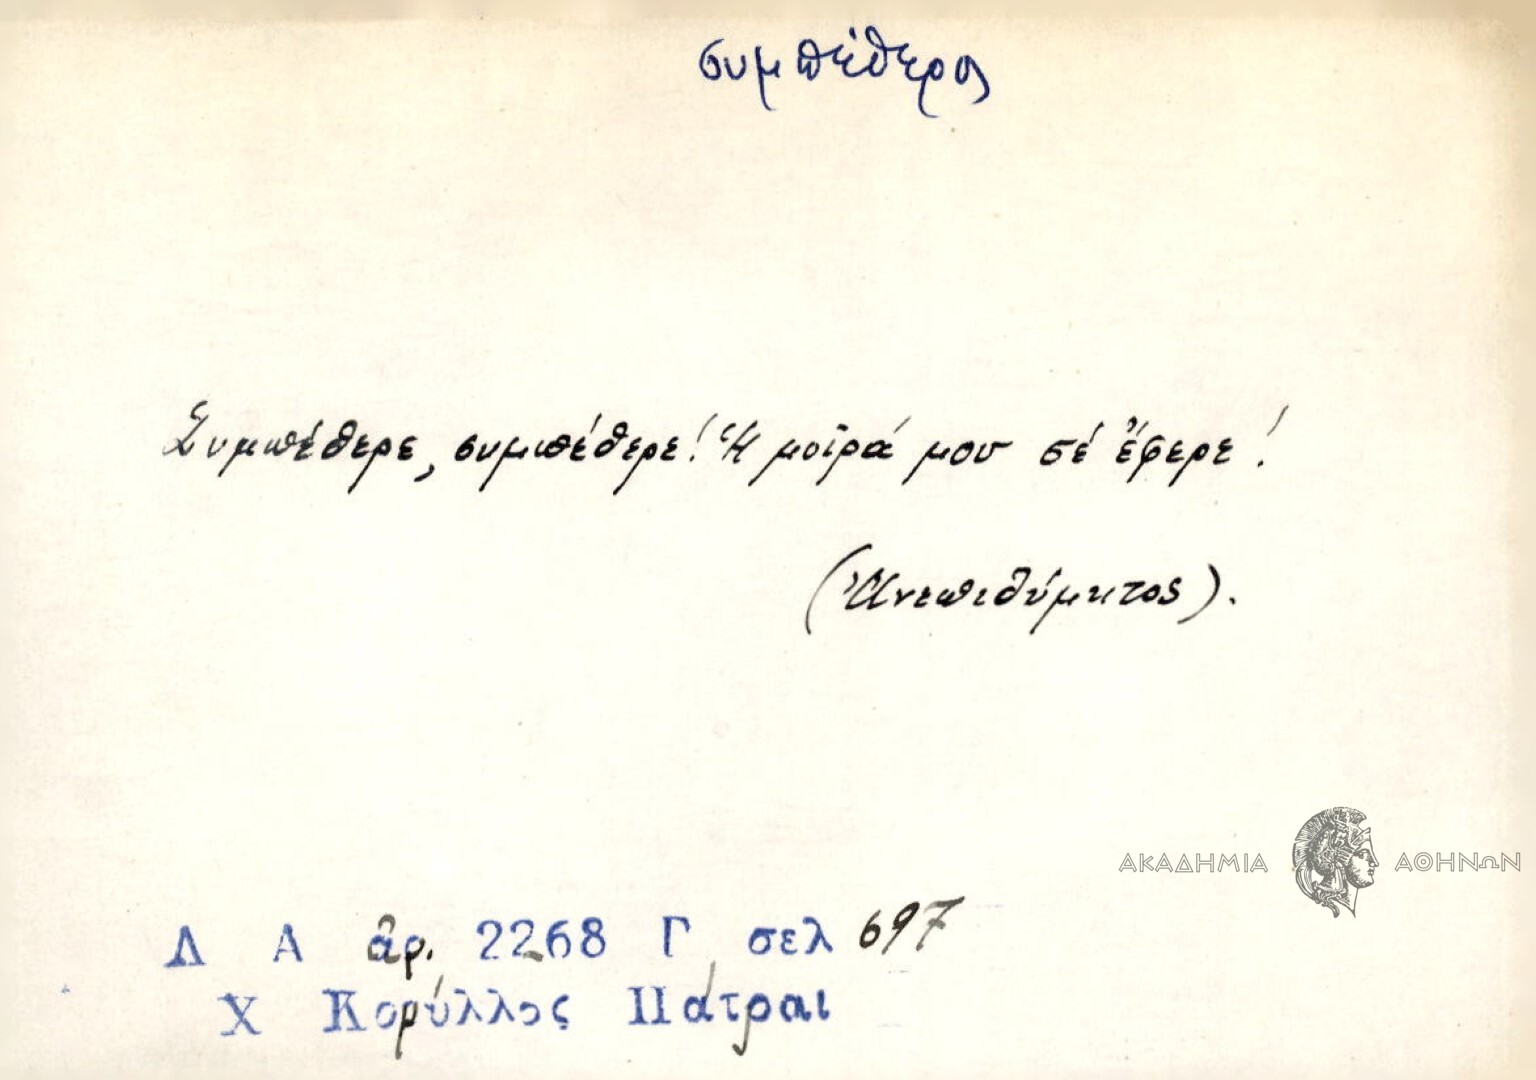 συμπέθερος
Συμπέθερε, συμπέθερε! Ἡ μοῖρά μου σέ ἔφερε!
(Ἀνεπιθύμητος).
ΑΚΑΔΗΜΙΑ ΑΘΗΝΩΝ
Λ Α ἀρ. 2268 Γ, σελ 697
Χ Κορύλλος Πάτραι